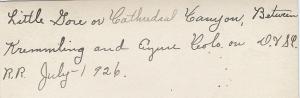 Little Gore or Cathedral Canyon, Between
Kremmling and Azure Colo. on D.&S.L.
R.R. July-1926.